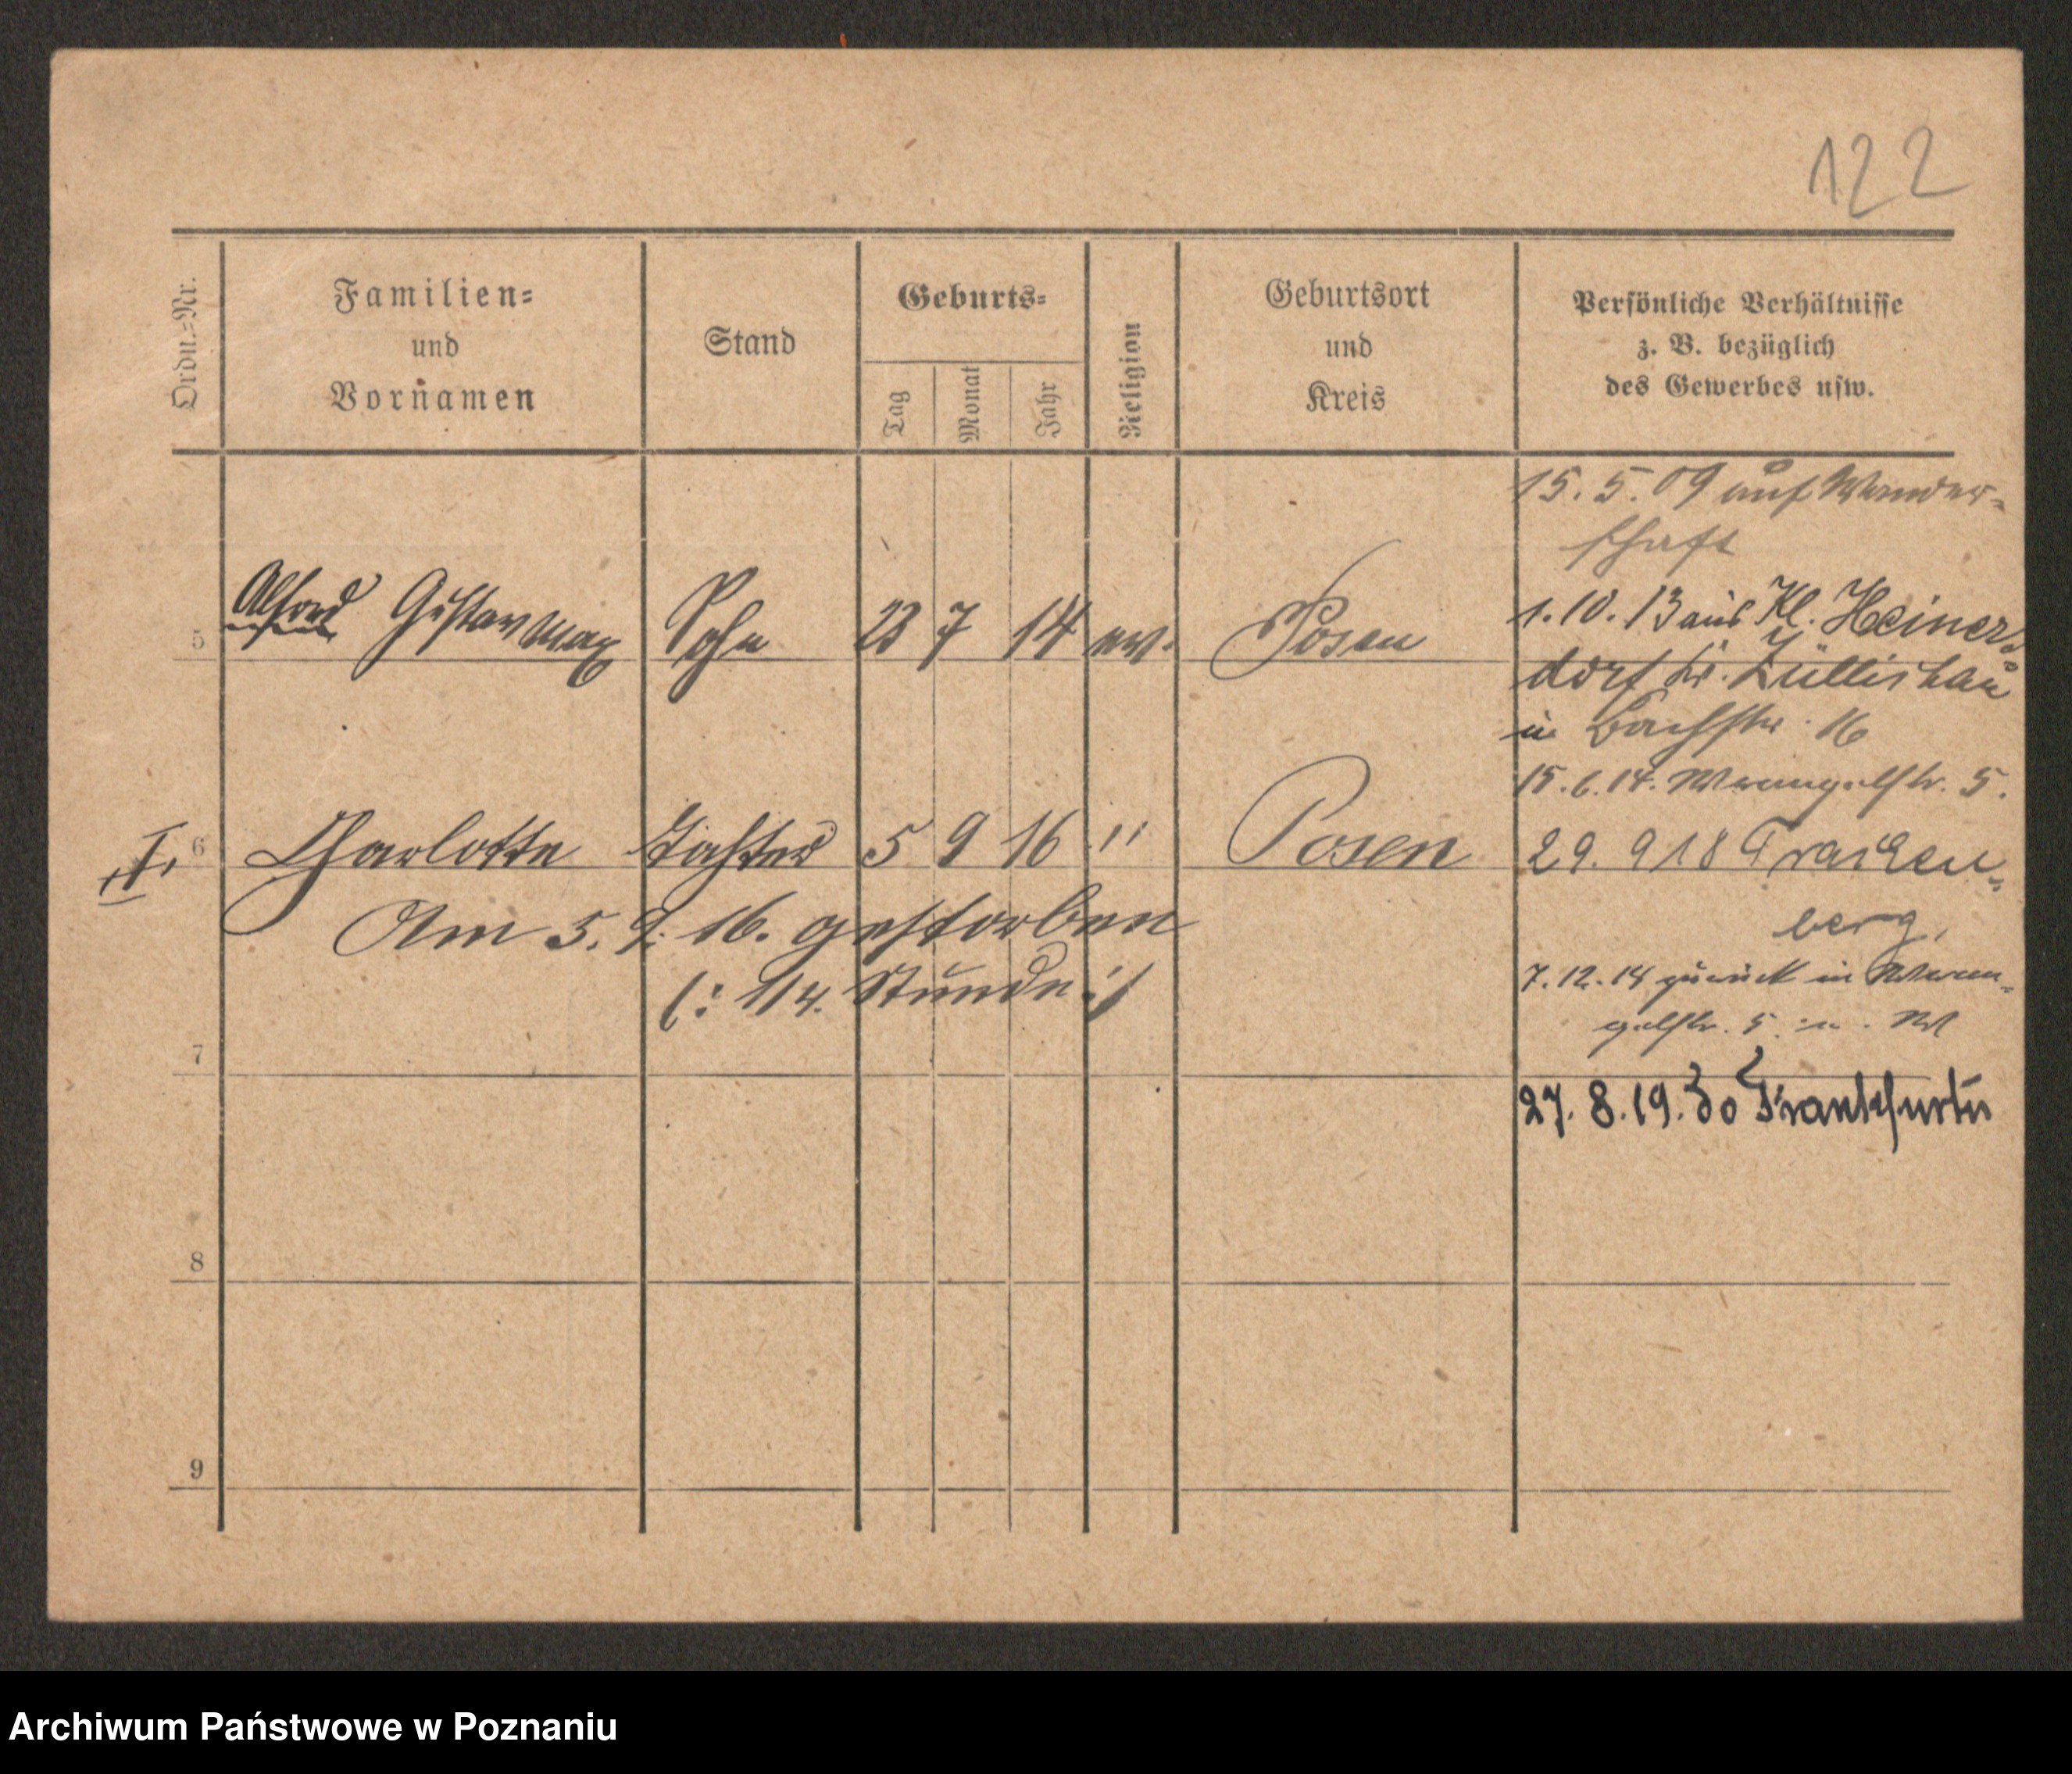 122
Ordn.-Nr.
Familien-
und
Vornamen
Stand
Geburts-
Tag
Monat
Jahr
Religion
Geburtsort
und
Kreis
Persönliche Verhältnisse
z. B. bezüglich
des Gewerbes usw.
15. 5. 09 auf Wander-
schaft
5 Alfred Gustav Max Sohn 23 7 14 ev. Posen
1. 10. 13 aus Kl. Heiners-
dorf Kr. Züllichau
in Bachstr. 16
15. 6. 14. Wrangelstr. 5.
6 Charlotte Tochter 5 9 16 " Posen
29. 9 18 Trachen-
berg,
Am 5. 9. 16. gestorben
(: 1/4. Stunde :)
7. 12. 14 zurück in Wran-
gelstr. 5
7
27. 8. 19. Frankfurt
8
9
Archiwum Państwowe w Poznaniu